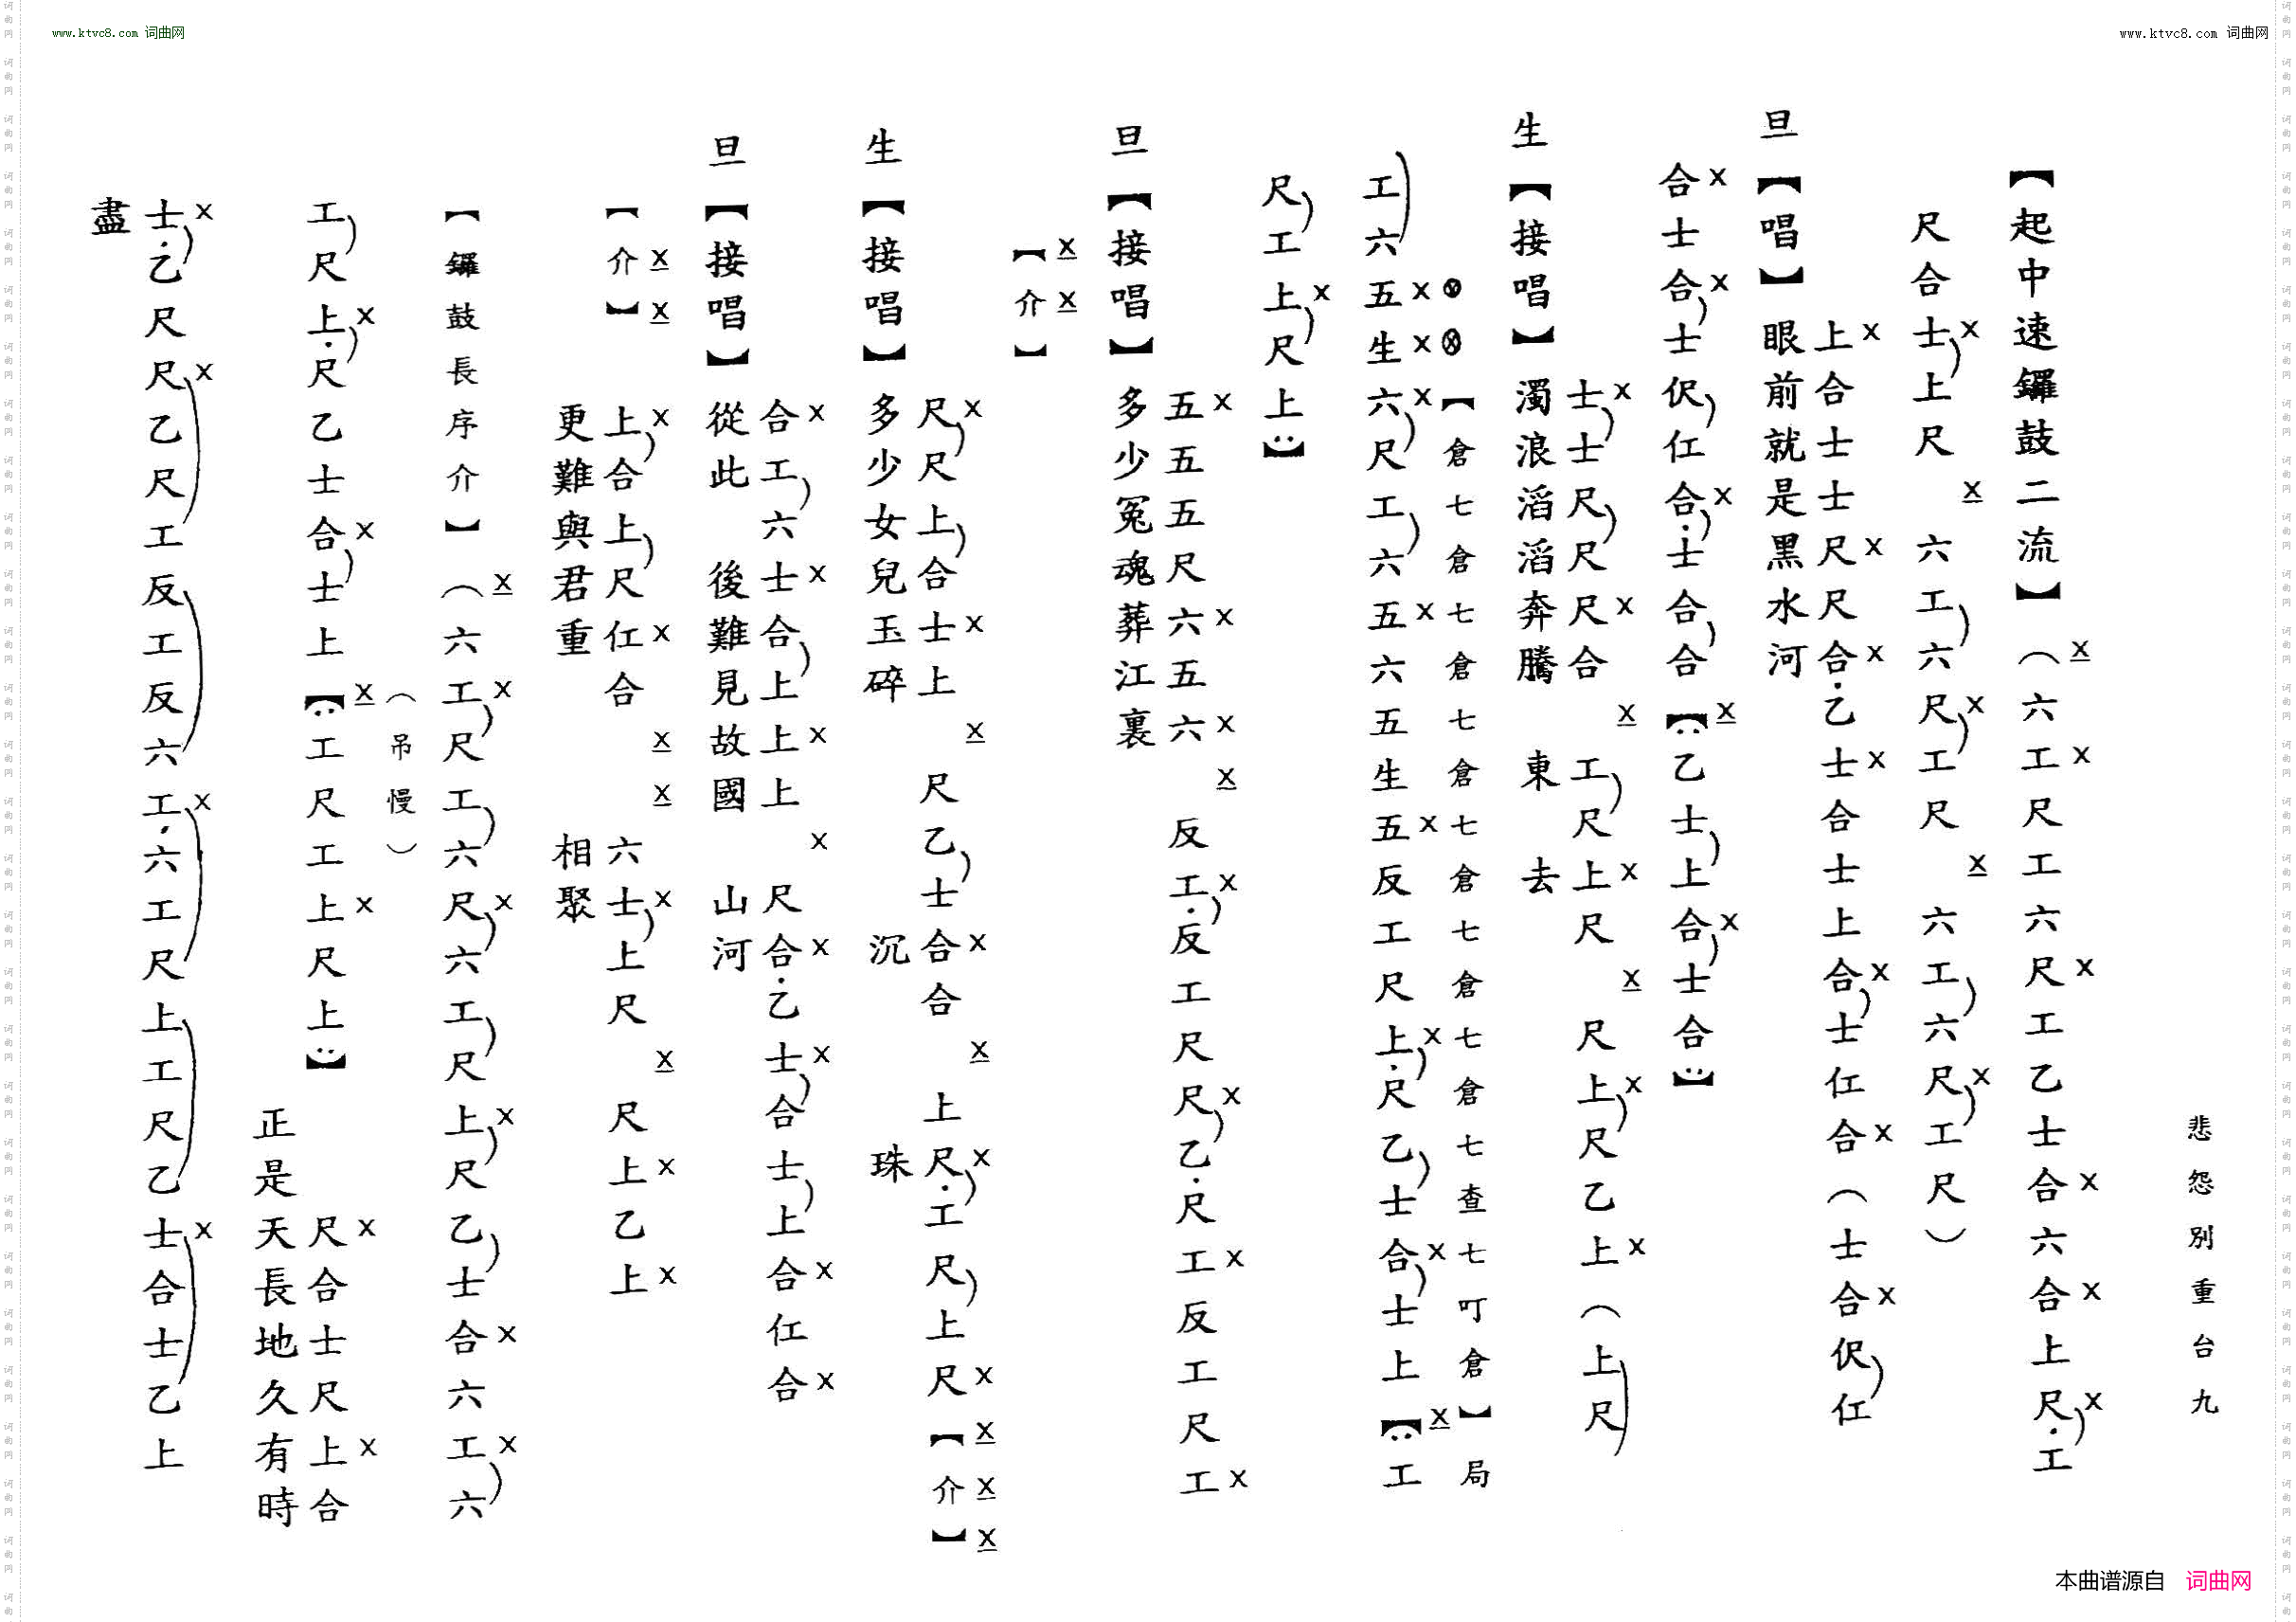 www.ktvc8.com 词曲网
www.ktvc8.com 词曲网
悲怨別重台九
【起中速鑼鼓二流】（六工尺工六尺工乙士合六合上尺·工
尺合士上尺六工六尺工尺六工六尺工尺）
旦【唱】眼前就是黑水河
上合士士尺尺合·乙士合士上合士仁合（士合伬仁
合士合士伬仁合·士合合【:乙士上合士合:】
生【接唱】濁浪滔滔奔騰東去
士士尺尺尺合工尺上尺尺上尺乙上（上尺
【倉七倉七倉七倉七倉七倉七倉七查七叮倉】局
工六五生六尺工六五六五生五反工尺上·尺乙士合士上【:工
尺工上尺上:】
旦【接唱】多少冤魂葬江裏
五五五尺六五六反工·反工尺尺乙·尺工反工尺工
【介】
生【接唱】多少女兒玉碎沉珠
尺尺上合士上尺乙士合合上尺·工尺上尺【介】
旦【接唱】從此後難見故國山河
合工六士合上上上尺合·乙士合士上合仁合
【介】
更難與君重相聚
上合上尺仁合六士上尺尺上乙上
【鑼鼓長序介】（六工尺工六尺六工尺上尺乙士合六工六
（吊慢）
工尺上·尺乙士合士上【:工尺工上尺上:】
正是天長地久有時
尺合士尺上合
盡
士·乙尺尺乙尺工反工反六工·六工尺上工尺乙士合士乙上
本曲谱源自 词曲网